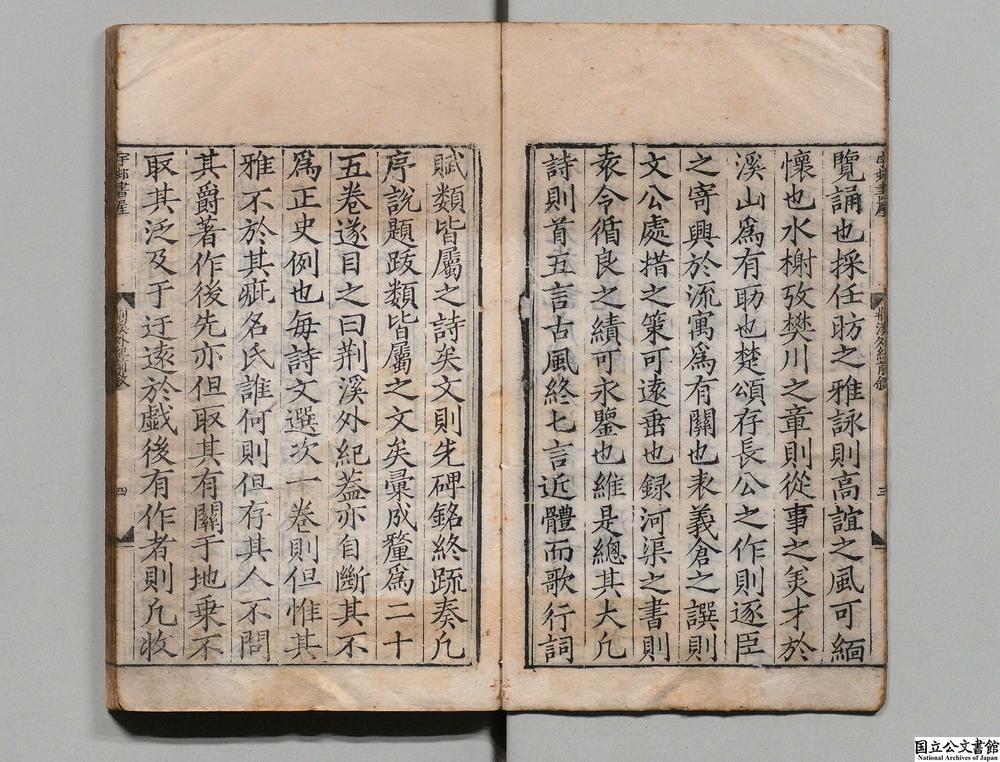 覽誦也採任昉之雅詠則高誼之風可緬
懷也水榭攷樊川之章則從事之羙才於
溪山爲有助也楚頌存長公之作則逐臣
之寄興於流寓爲有關也表義倉之譔則
文公處措之策可遠垂也録河渠之書則
袁令循良之績可永鑒也維是總其大凢
詩則首五言古風終七言近體而歌行詞
賦類皆屬之詩矣文則先碑銘終疏奏凢
序說題跋類皆屬之文矣彙成釐爲二十
五卷遂目之曰荆溪外紀葢亦自斷其不
爲正史例也每詩文選次一卷則但惟其
雅不於其疵名氏誰何則但存其人不問
其爵著作後先亦但取其有關于地乗不
取其泛及于迂遠於戲後有作者則凢收
荆溪外紀
四
三
国立公文書館
National Archives of Japan